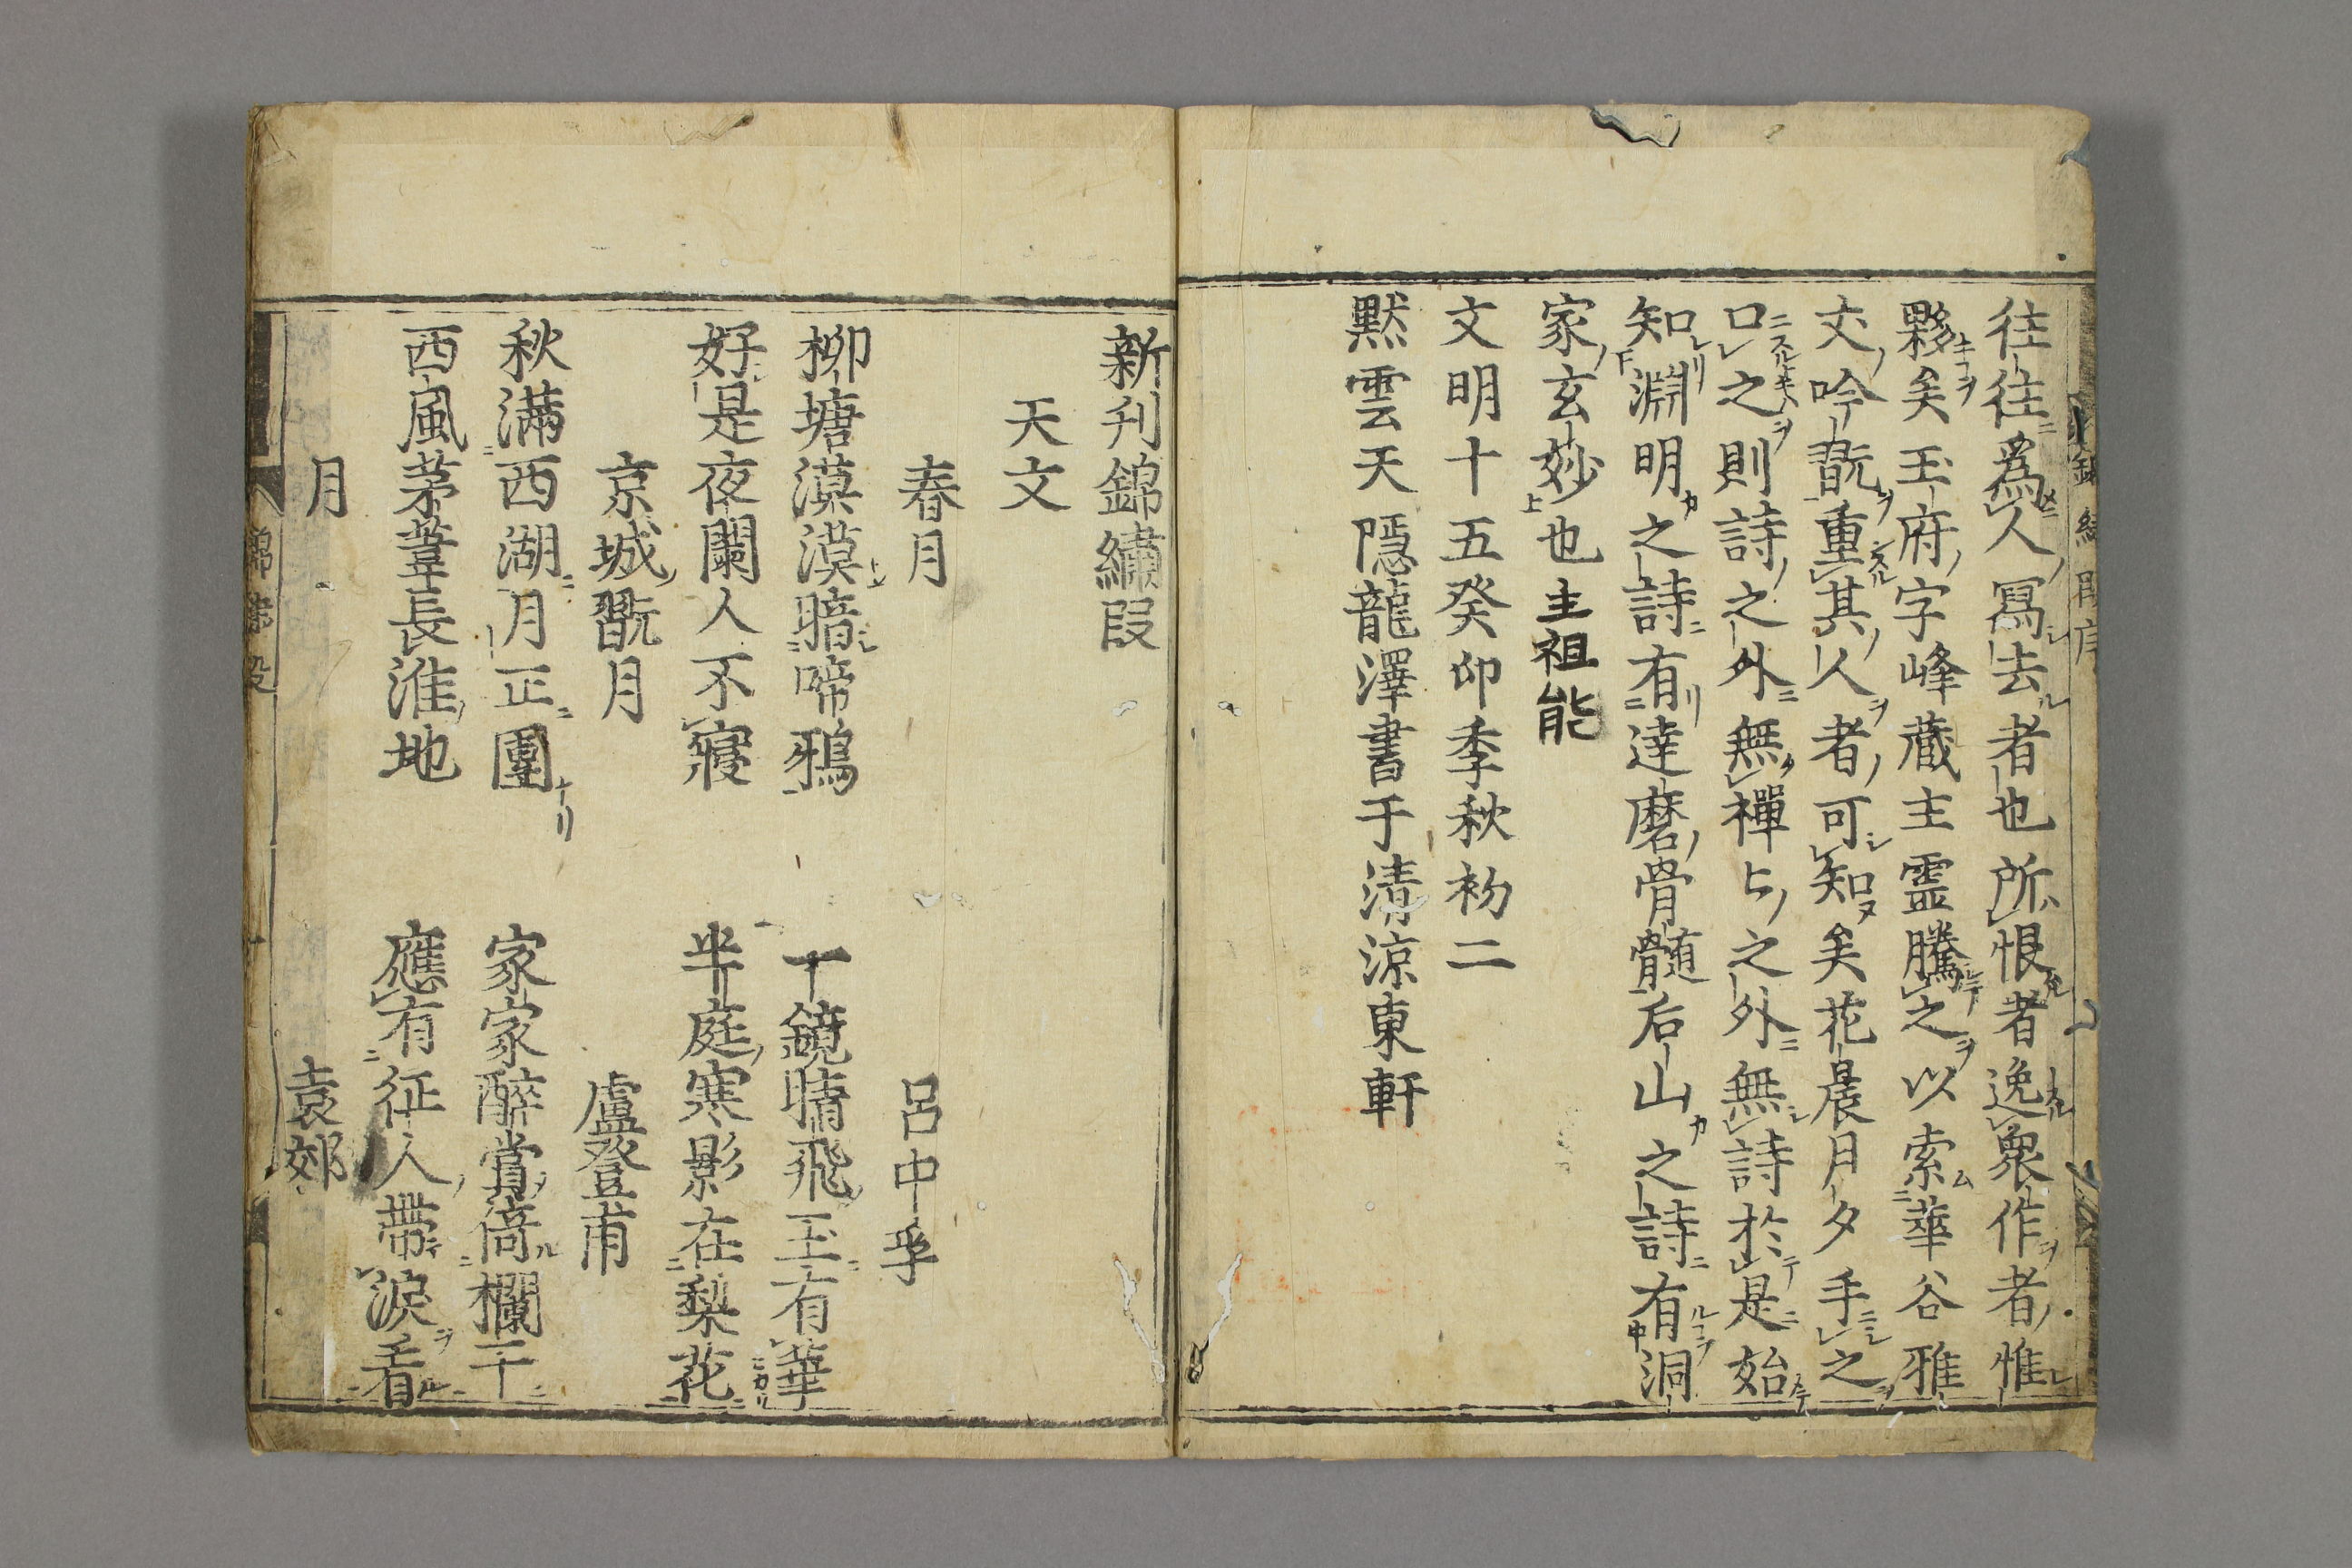 往往爲人冩去者也所恨者逸衆作者惟
夥矣玉府字峰蔵主霊騰之以索華谷雅
丈吟翫重其人者可知矣花晨月夕手之
口之則詩之外無禪禪之外無詩於是始
知淵明之詩有達磨骨髄后山之詩有洞
家玄妙也主祖能
文明十五癸卯季秋初二
黙雲天隠龍澤書于清凉東軒
新刊錦繡段
天文
春月
呂中孚
柳塘漠漠暗啼鴉
一鏡晴飛玉有華
好是夜闌人不寢
半庭寒影在梨花
京城翫月
盧登甫
秋満西湖月正團
家家醉賞倚欄干
西風茅葦長淮地
應有征人帶淚看
月
袁郊
錦繡段